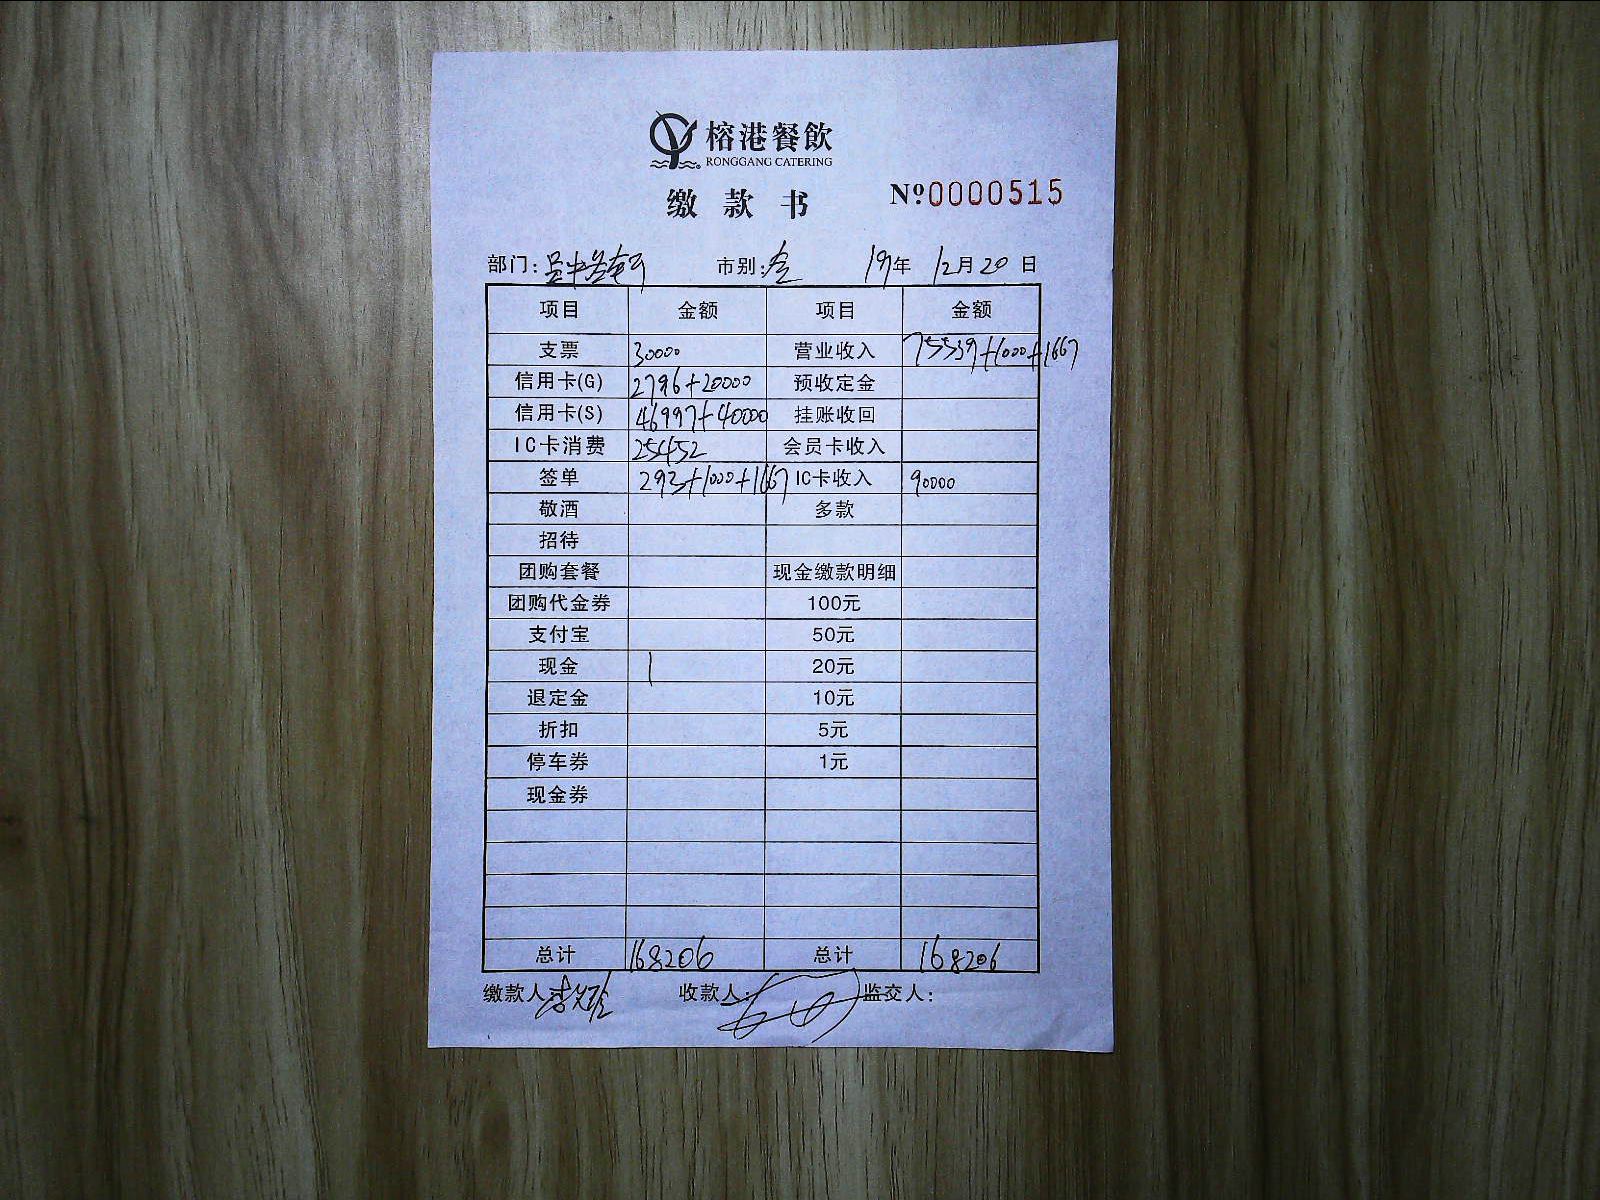 榕港餐飲
RONGGANG CATERING
缴款书 №0000515
部门: 市别: 19年 12月20日
项目 金额 项目 金额
支票 30000 营业收入 75539+1000+1667
信用卡(G) 2796+20000 预收定金
信用卡(S) 46997+40000 挂账收回
IC卡消费 25452 会员卡收入
签单 293+1000+1667 IC卡收入 90000
敬酒 多款
招待
团购套餐 现金缴款明细
团购代金券 100元
支付宝 50元
现金 1 20元
退定金 10元
折扣 5元
停车券 1元
现金券
总计 168206 总计 168206
缴款人: 收款人: 监交人: